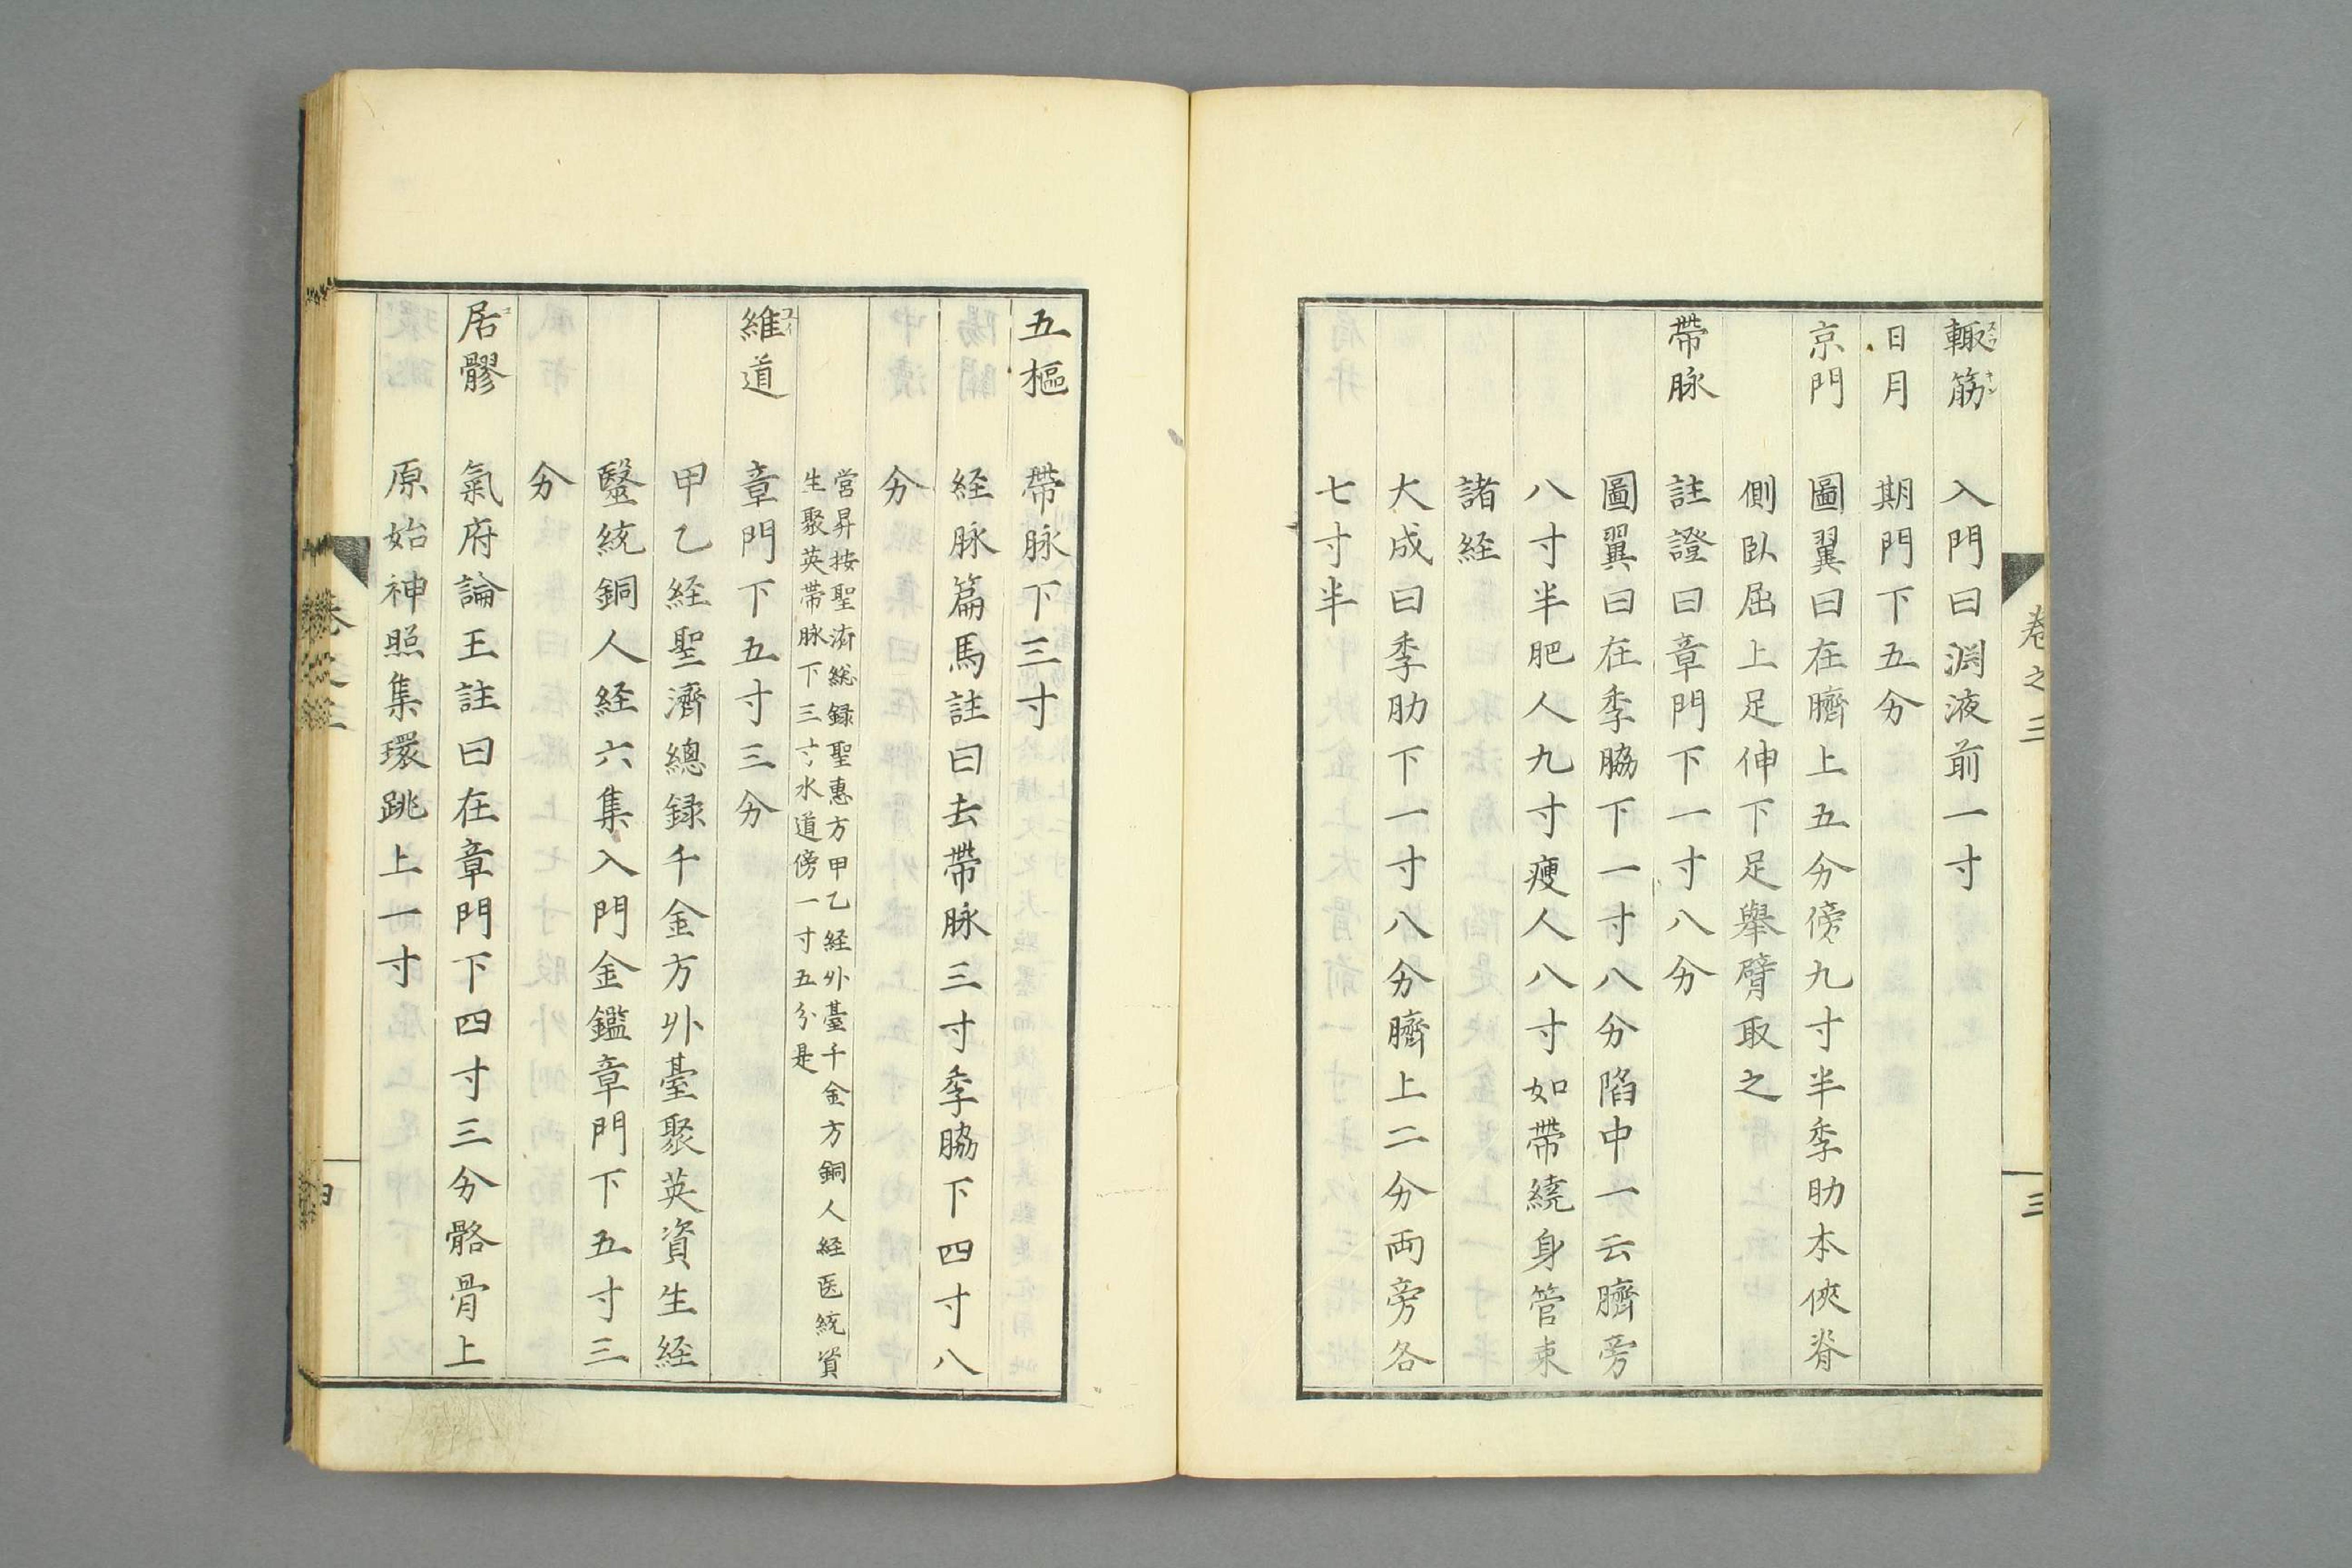 輙筋 入門曰渕液前一寸
日月 期門下五分
京門 圖翼曰在臍上五分傍九寸半季肋本俠脊
側臥屈上足伸下足舉臂取之
帶脉 註證曰章門下一寸八分
圖翼曰在季脇下一寸八分陷中一云臍旁
八寸半肥人九寸瘦人八寸如帶繞身管束
諸経
大成曰季肋下一寸八分臍上二分両旁各
七寸半
卷之三
三
五樞 帶脉下三寸
経脉篇馬註曰去帶脉三寸季脇下四寸八
分
営昇按聖済総録聖惠方甲乙経外臺千金方銅人経医統資
生聚英帯脉下三寸水道傍一寸五分是
維道 章門下五寸三分
甲乙経聖濟總録千金方外臺聚英資生経
醫統銅人経六集入門金鑑章門下五寸三
分
居髎 氣府論王註曰在章門下四寸三分骼骨上
原始神照集環跳上一寸
卷之三